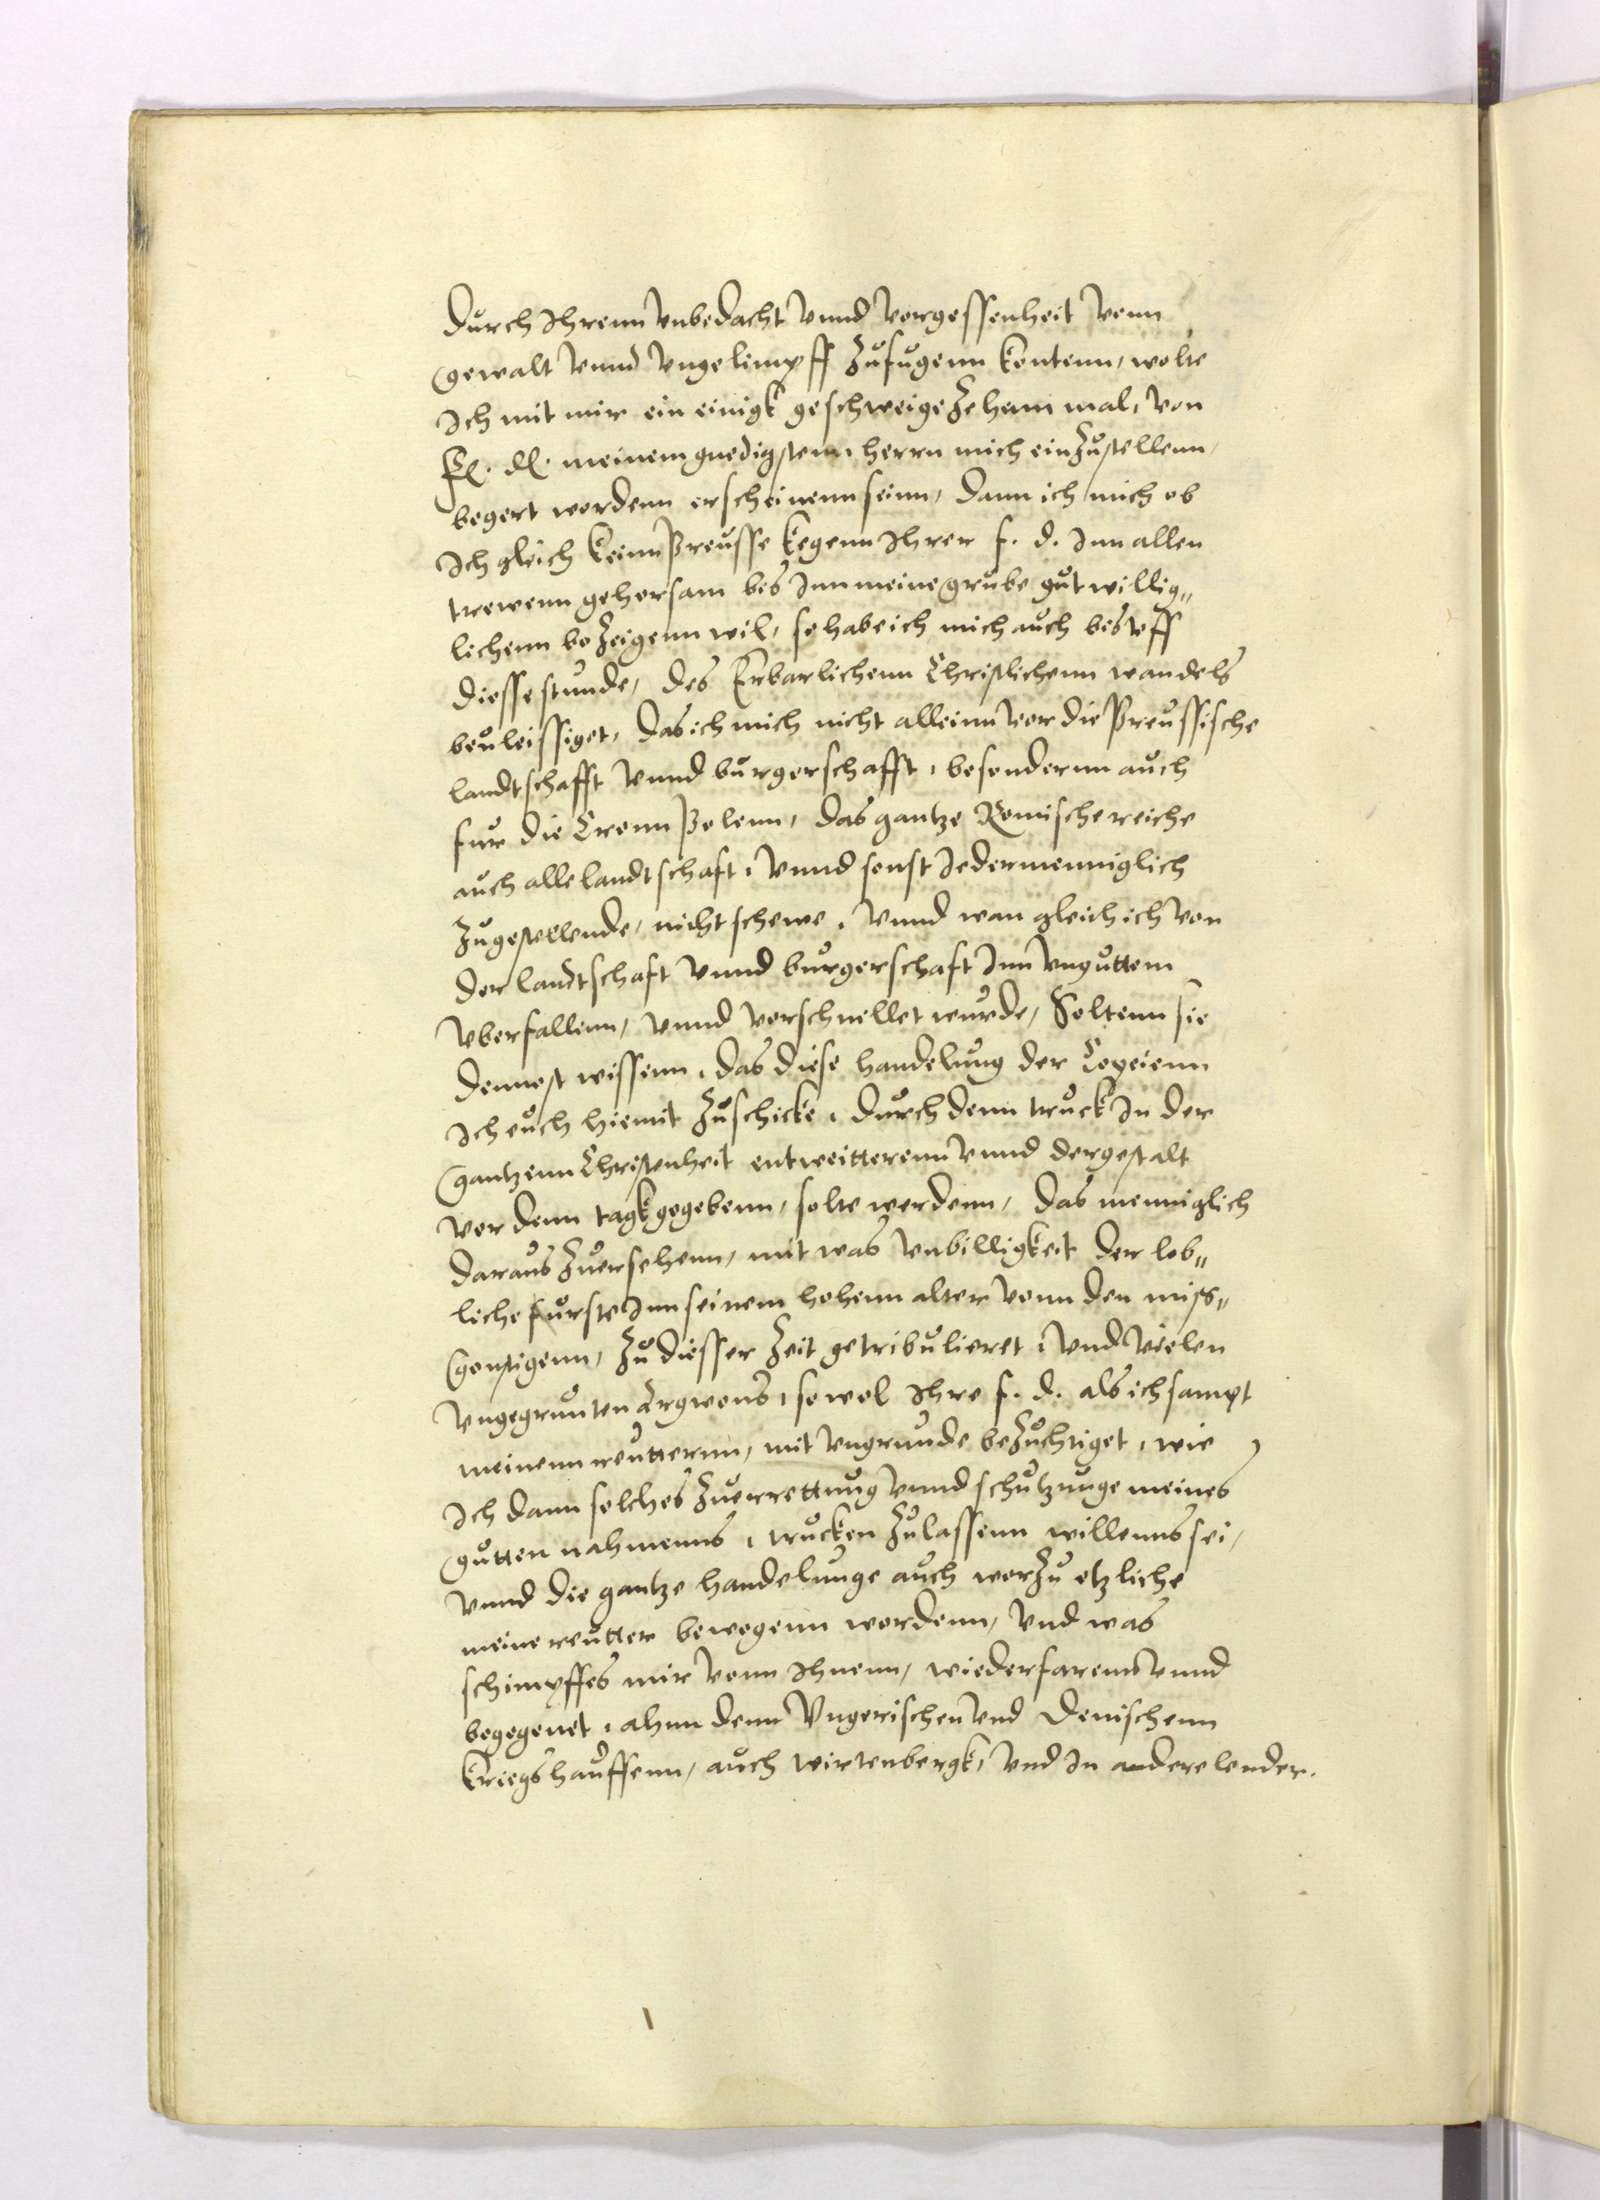 durch Ihrenn vnbedacht vnnd vorgessenheit vonn
gewalt vnnd vngelimpff zufugenn kontenn, wolte
Ich mit mir ein einigk geschweige zehenn mal, von
F. D. meinem gnedigstenn herrn mich einzustellenn,
begert wordenn erscheinenn seinn, dann ich mich ob
Ich gleich keinn Preusse kegenn Ihrer f. d. Inn allen
trewenn gehorsam bes Inn meine grube gutwillig„
lichenn bezeigenn wil, so habe ich mich auch bes vff
diesse stunde, des Erbarlichenn Christlichenn wandels
beuleissiget, das ich mich nicht alleinn vor die Preussische
landtschafft vnnd burgerschafft, besondernn auch
fur die Cronn Polenn, das gantze Romische reiche
auch alle landtschaft, vnnd sonst Jedermenniglich
zugestellende, nicht schewe, vnnd wan gleich ich von
der landtschaft vnnd burgerschaft Inn vnguttem
vberfallenn, vnnd vorschnellet wurde, Soltenn sie
dennost wissenn, das diese handelung der Copeienn
Ich euch hiemit zuschicke, durch denn truck In der
gantzenn Christenheit entweitterenn vnnd dergestalt
vor denn tagk gegebenn, solte werdenn, das menniglich
daraus zuersehenn, mit was vnbilligkeit der lob„
liche furste Inn seinem hohenn alter vonn den miss„
gonstigenn, zu diesser zeit getribulieret, vnd vielen
vngegrunten Argwons, so wol Ihre f. d. als ich sampt
meinenn reutternn, mit vngrunde bezuchtiget, wie
Ich dann solches zuerrettung vnnd schutzunge meines
gutten nahmenns, trucken zulassenn willenns sei,
vnnd die gantze handelunge auch worzu etzliche
meine reutter bewogenn wordenn, vnd was
schimpffes mir vonn Ihnenn, wiederfarenn vnnd
begegenet, ahnn denn Vngerischen vnd Denischenn
kriegshauffenn, auch wirtenbergk, vnd In andere lender.